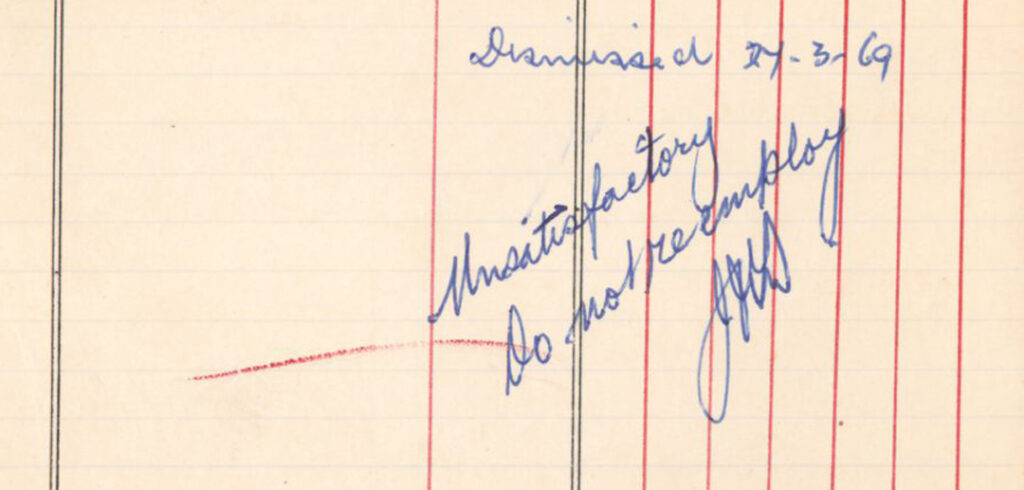 Dismissed 27-3-69
Unsatisfactory
Do not re employ